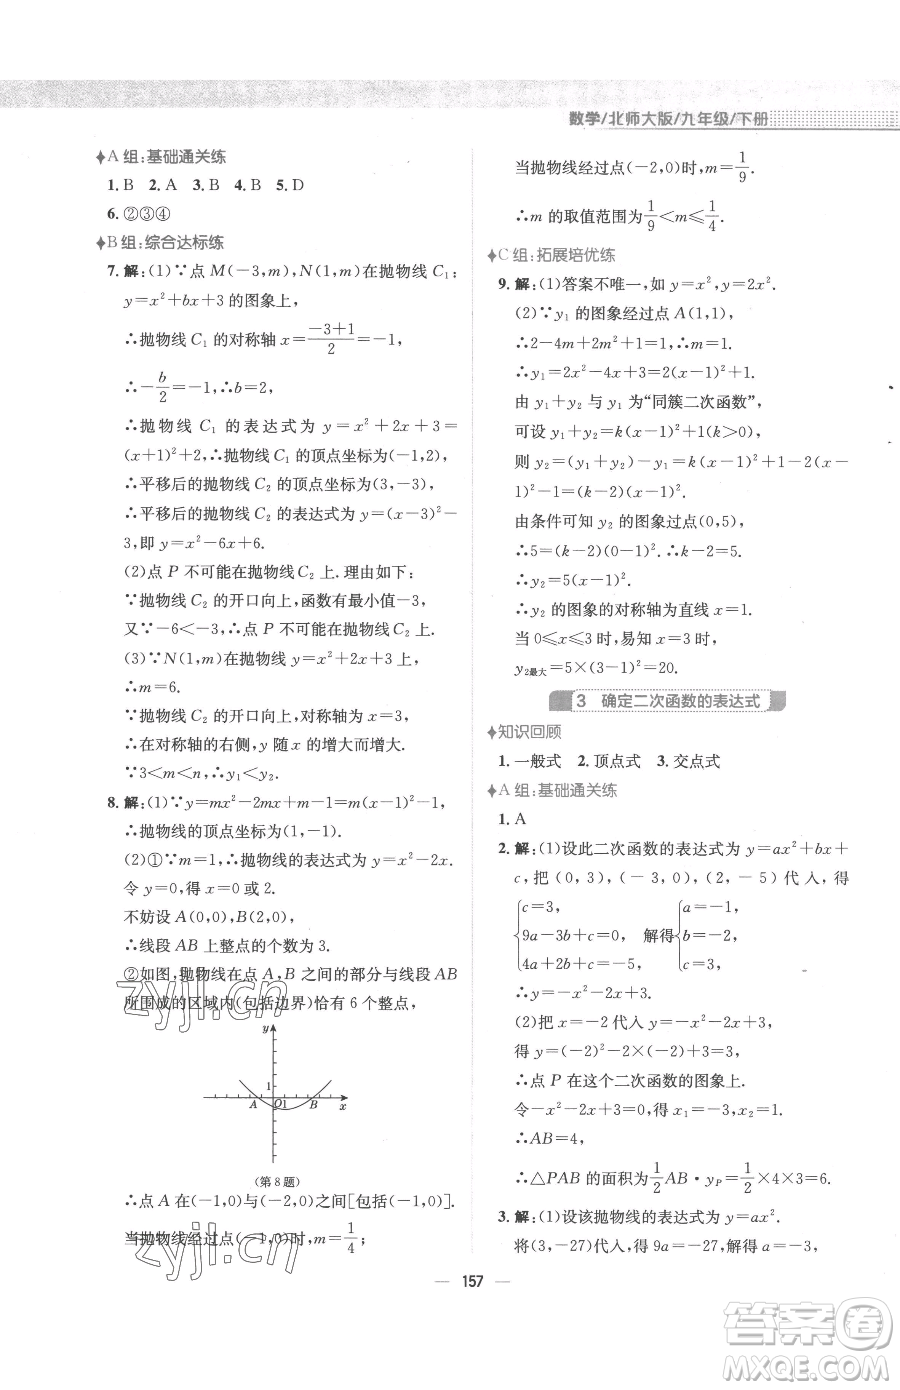 数学/北师大版/九年级/下册
A 组:基础通关练
1. B 2. A 3. B 4. B 5. D
6. ②③④
B 组:综合达标练
7. 解:(1)∵点 M(-3,m),N(1,m)在抛物线 C₁:
y=x²+bx+3 的图象上,
∴抛物线 C₁ 的对称轴 x=(-3+1)/2=-1,
∴-b/2=-1,∴b=2,
∴抛物线 C₁ 的表达式为 y=x²+2x+3=
(x+1)²+2,∴抛物线 C₁ 的顶点坐标为(-1,2),
∴平移后的抛物线 C₂ 的顶点坐标为(3,-3),
∴平移后的抛物线 C₂ 的表达式为 y=(x-3)²-
3,即 y=x²-6x+6.
(2)点 P 不可能在抛物线 C₂ 上.理由如下:
∵抛物线 C₂ 的开口向上,函数有最小值-3,
又∵-6<-3,∴点 P 不可能在抛物线 C₂ 上.
(3)∵N(1,m)在抛物线 y=x²+2x+3 上,
∴m=6.
∵抛物线 C₂ 的对称轴为 x=3,
∴在对称轴的右侧,y 随 x 的增大而增大.
∵3<m<n,∴y₁<y₂.
8. 解:(1)∵y=mx²-2mx+m-1=m(x-1)²-1,
∴抛物线的顶点坐标为(1,-1).
(2)①∵m=1,∴抛物线的表达式为 y=x²-2x.
令 y=0,得 x=0 或 2.
不妨设 A(0,0),B(2,0),
∴线段 AB 上整点的个数为 3.
②如图,抛物线在点 A,B 之间的部分与线段 AB
所围成的区域内(包括边界)恰有 6 个整点,
y
1
A O 1 B x
(第 8 题)
∴点 A 在(-1,0)与(-2,0)之间[包括(-1,0)].
当抛物线经过点(-1,0)时,m=1/4;
当抛物线经过点(-2,0)时,m=1/9.
∴m 的取值范围为 1/9<m≤1/4.
C 组:拓展培优练
9. 解:(1)答案不唯一,如 y=x²,y=2x².
(2)∵y₁ 的图象经过点 A(1,1),
∴2-4m+2m²+1=1.∴m=1.
∴y₁=2x²-4x+3=2(x-1)²+1.
由 y₁+y₂ 与 y₁ 为“同簇二次函数”,
可设 y₁+y₂=k(x-1)²+1(k>0),
则 y₂=(y₁+y₂)-y₁=k(x-1)²+1-2(x-
1)²-1=(k-2)(x-1)².
由条件可知 y₂ 的图象过点(0,5),
∴5=(k-2)(0-1)².∴k-2=5.
∴y₂=5(x-1)².
∴y₂ 的图象的对称轴为直线 x=1.
当 0≤x≤3 时,易知 x=3 时,
y₂最大=5×(3-1)²=20.
3 确定二次函数的表达式
知识回顾
1. 一般式 2. 顶点式 3. 交点式
A 组:基础通关练
1. A
2. 解:(1)设此二次函数的表达式为 y=ax²+bx+
c,把(0,3),(-3,0),(2,-5)代入,得
{c=3, 9a-3b+c=0, 4a+2b+c=-5, 解得 {a=-1, b=-2, c=3,
∴y=-x²-2x+3.
(2)把 x=-2 代入 y=-x²-2x+3,
得 y=-(-2)²-2×(-2)+3=3,
∴点 P 在这个二次函数的图象上.
令-x²-2x+3=0,得 x₁=-3,x₂=1,
∴AB=4,
∴△PAB 的面积为 1/2 AB·yₚ=1/2×4×3=6.
3. 解:(1)设该抛物线的表达式为 y=ax².
将(3,-27)代入,得 9a=-27,解得 a=-3,
157
zyjl.cn
zyjl.cn
答案圈
MXQE.COM